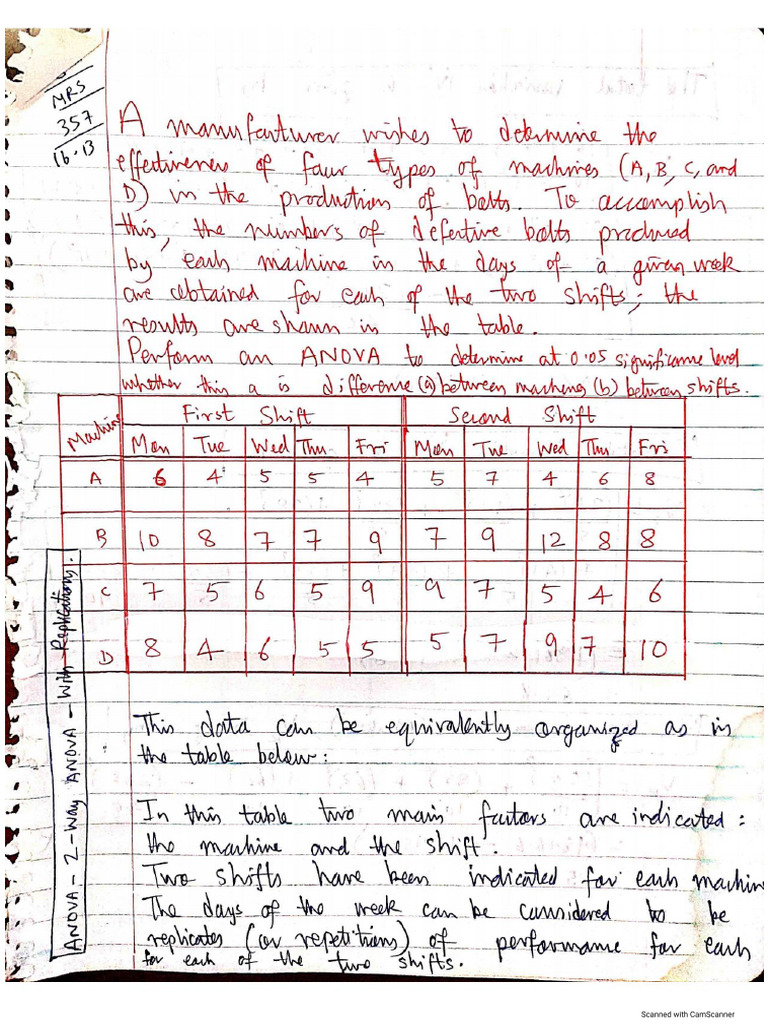 MRS
357
16.13
A manufacturer wishes to determine the
effectiveness of four types of machines (A, B, C, and
D) in the production of bolts. To accomplish
this, the numbers of defective bolts produced
by each machine in the days of a given week
are obtained for each of the two shifts; the
results are shown in the table.
Perform an ANOVA to determine at 0.05 significance level
whether this a is difference (a) between machines (b) between shifts.
Machine First Shift Second Shift
Mon Tue Wed Thu Fri Mon Tue Wed Thu Fri
A 6 4 5 5 4 5 7 4 6 8
B 10 8 7 7 9 7 9 12 8 8
C 7 5 6 5 9 9 7 5 4 6
D 8 4 6 5 5 5 7 9 7 10
ANOVA - 2-Way ANOVA - With Replications.
This data can be equivalently organized as in
the table below:
In this table two main factors are indicated:
the machine and the shift.
Two shifts have been indicated for each machine
The days of the week can be considered to be
replicates (or repetitions) of performance for each
for each of the two shifts.
Scanned with CamScanner